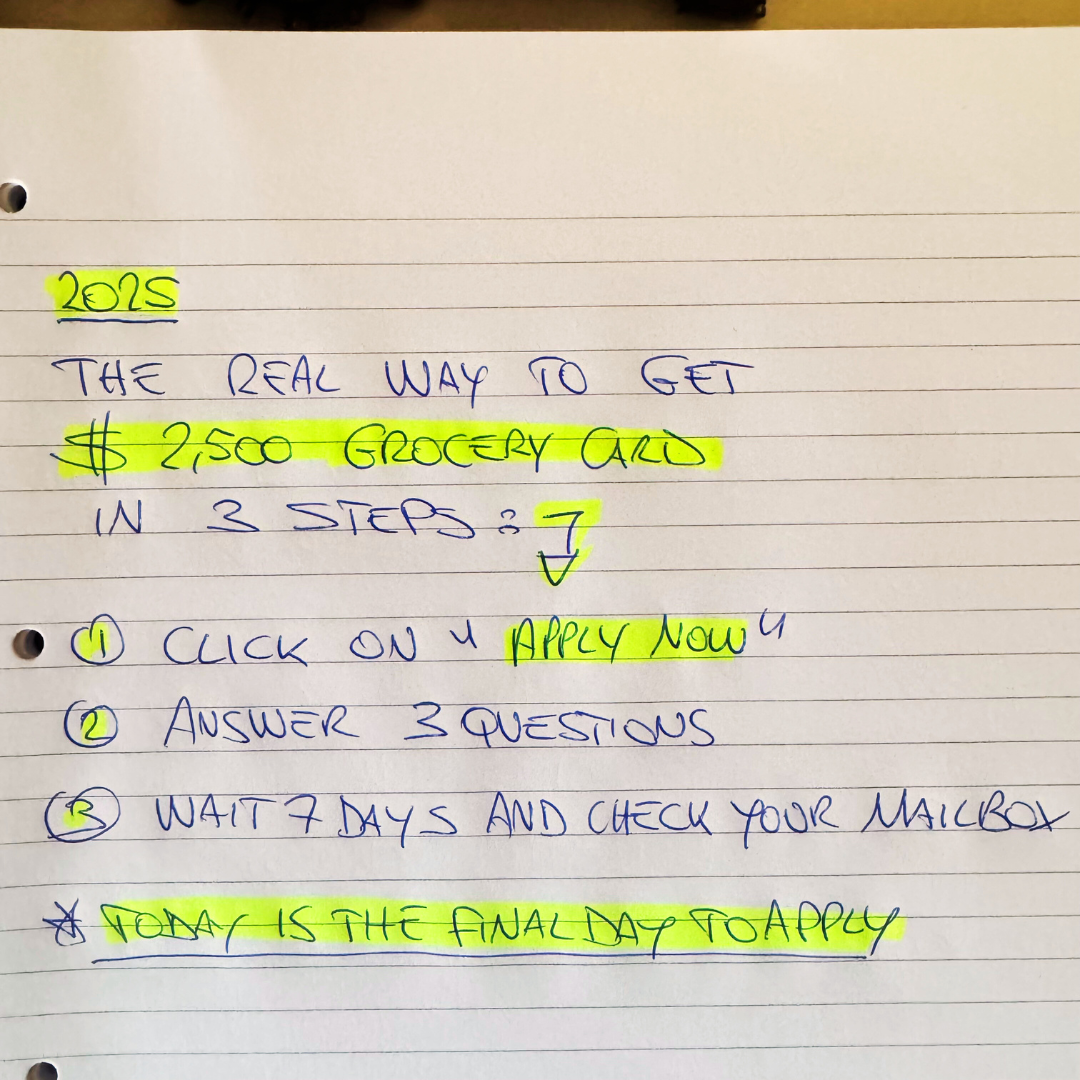 2025
THE REAL WAY TO GET
$ 2,500 GROCERY CARD
IN 3 STEPS :
1 CLICK ON "APPLY NOW"
2 ANSWER 3 QUESTIONS
3 WAIT 7 DAYS AND CHECK YOUR MAILBOX
* TODAY IS THE FINAL DAY TO APPLY